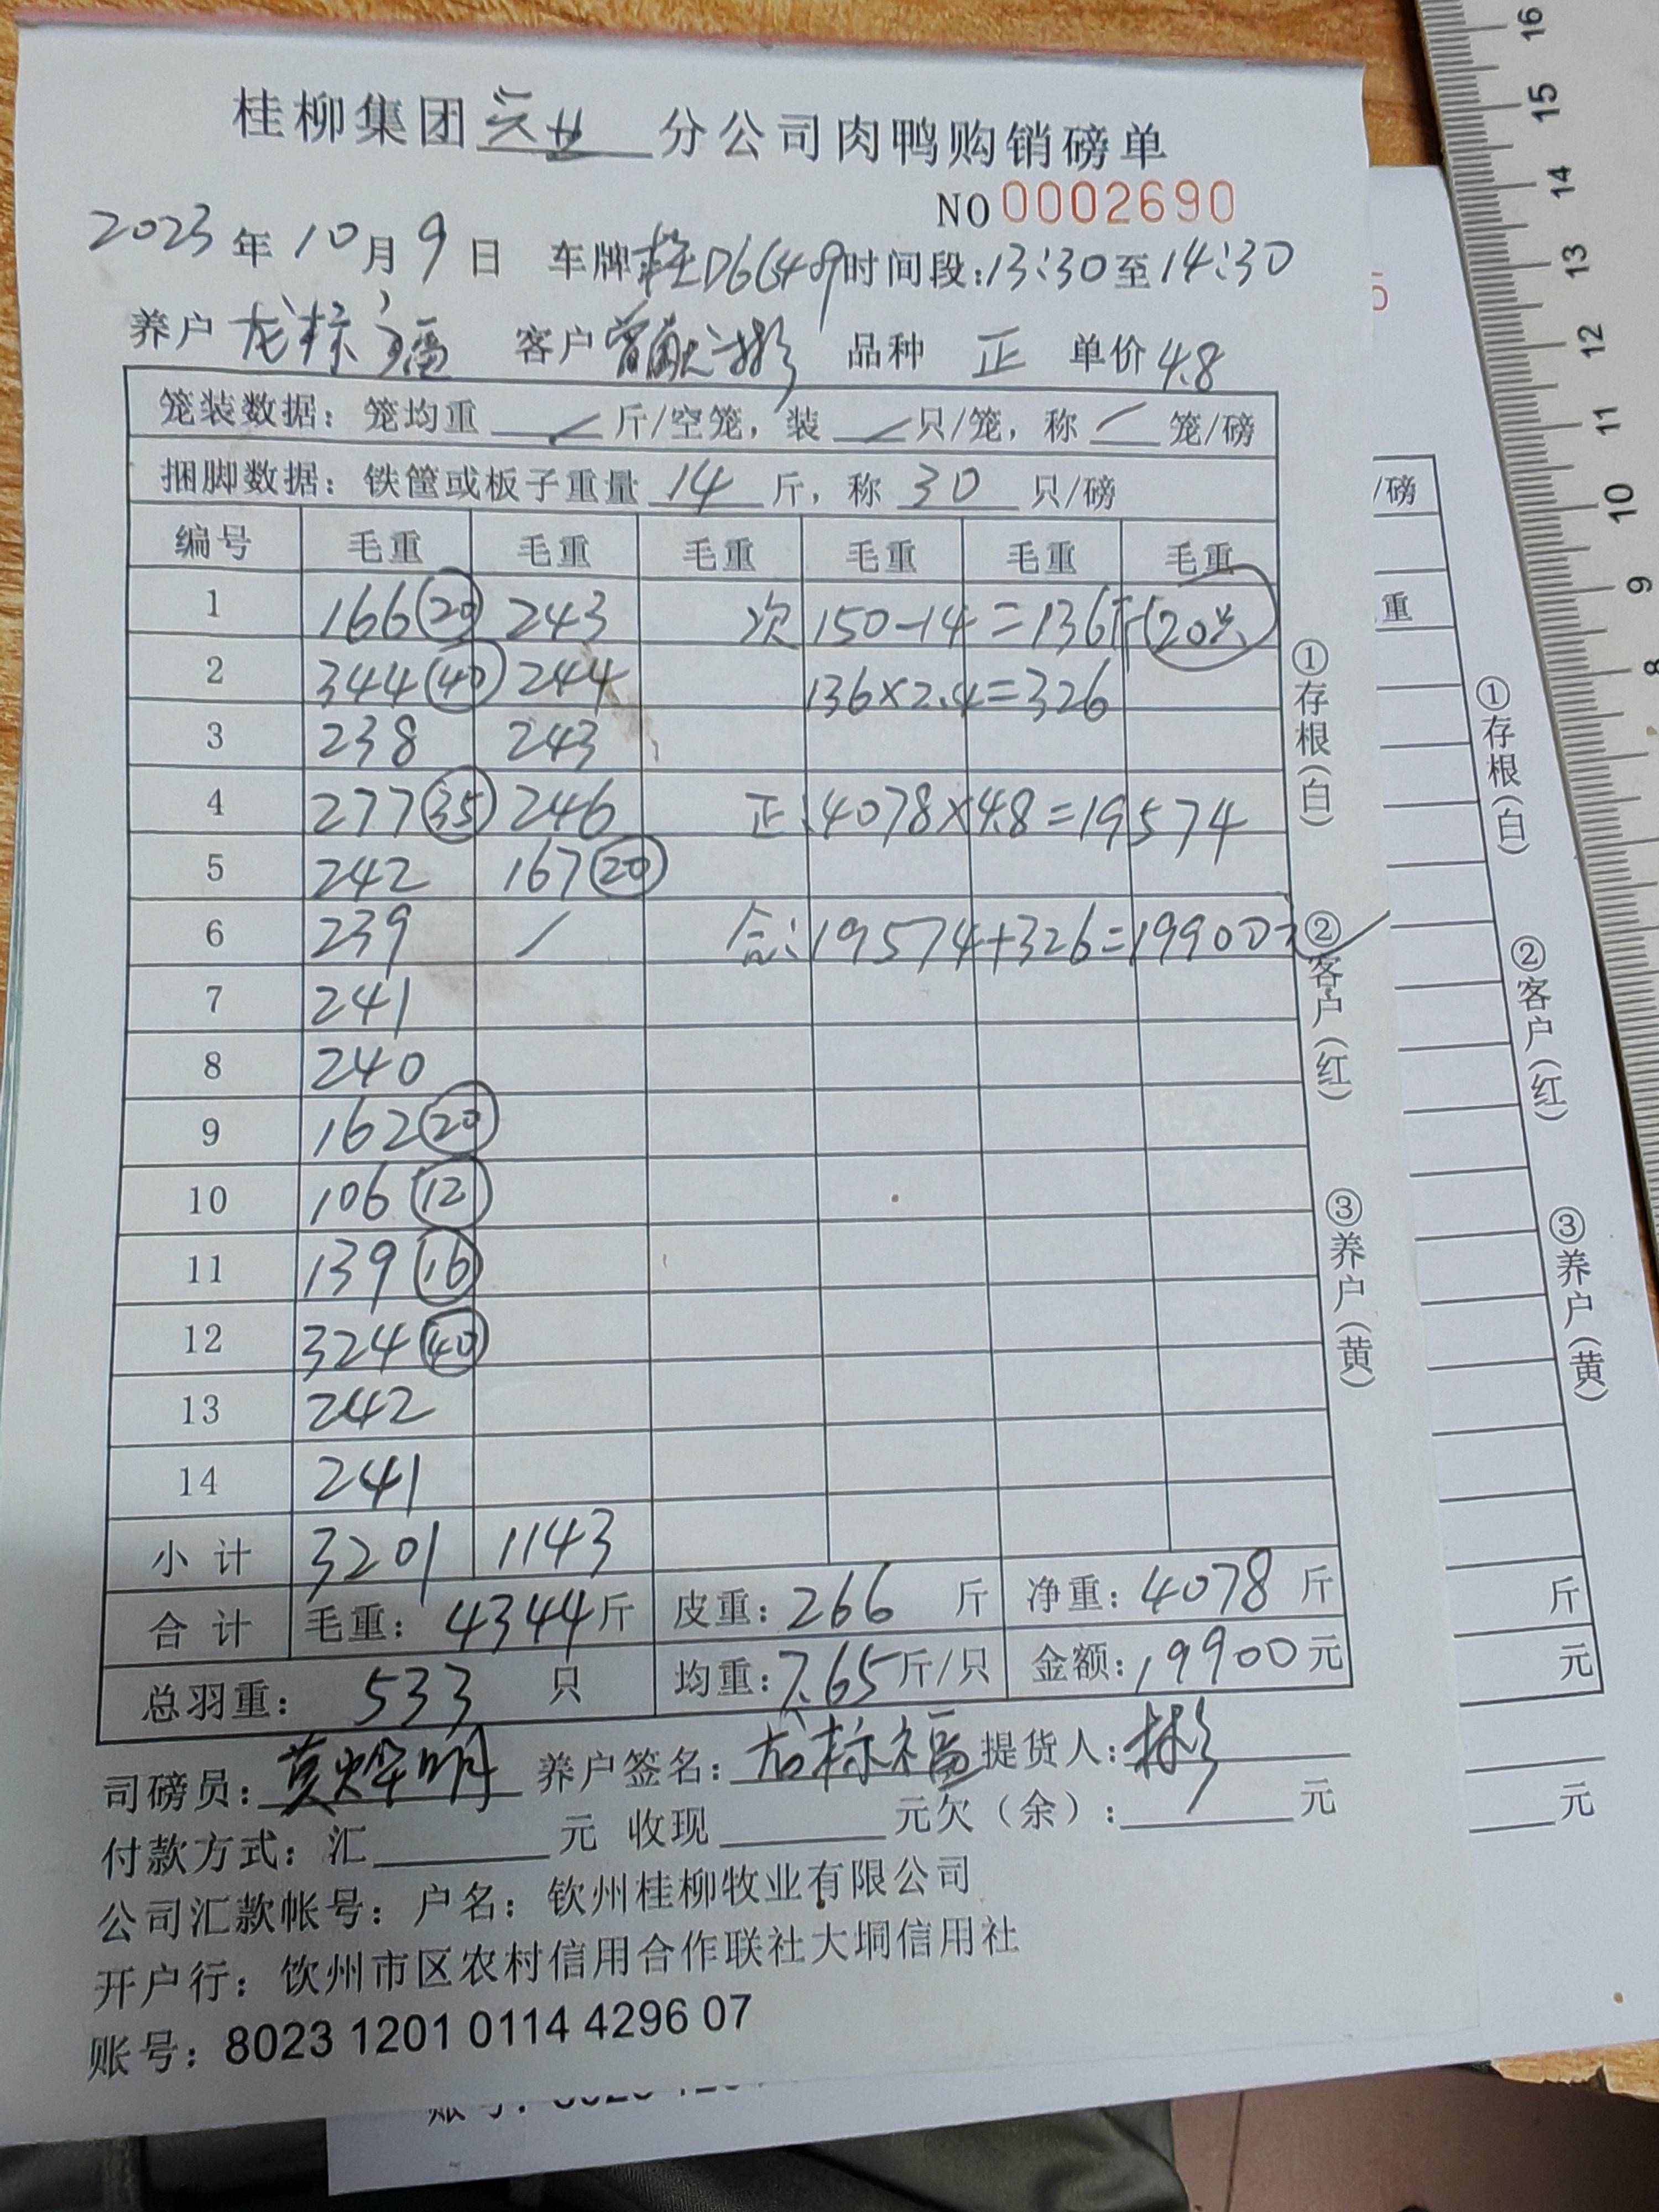 桂柳集团 分公司肉鸭购销磅单
NO 0002690
2023年10月9日 车牌桂D66489时间段:13:30至14:30
养户 龙标福 客户 曾献彬 品种 正 单价 4.8
笼装数据：笼均重 / 斤/空笼，装 / 只/笼，称 / 笼/磅
捆脚数据：铁筐或板子重量 14 斤，称 30 只/磅
编号 毛重 毛重 毛重 毛重 毛重 毛重
1 166(20) 243 次 150-14=136斤(20只)
2 344(40) 244 136×2.4=326
3 238 243
4 277(35) 246 正:4078×4.8=19574
5 242 167(20)
6 239 / 合:19574+326=19900元
7 241
8 240
9 162(20)
10 106(12)
11 139(16)
12 324(40)
13 242
14 241
小计 3201 1143
合计 毛重：4344斤 皮重：266 斤 净重：4078 斤
总羽重： 533 只 均重：7.65斤/只 金额：19900元
司磅员：黄烨明 养户签名：龙标福 提货人：彬
付款方式：汇 元 收现 元欠（余）： 元
公司汇款帐号：户名：钦州桂柳牧业有限公司
开户行：钦州市区农村信用合作联社大垌信用社
账号：8023 1201 0114 4296 07
①存根(白)
②客户(红)
③养户(黄)
5
/磅
重
①存根(白)
②客户(红)
③养户(黄)
斤
元
元
16
15
14
13
12
11
10
9
8